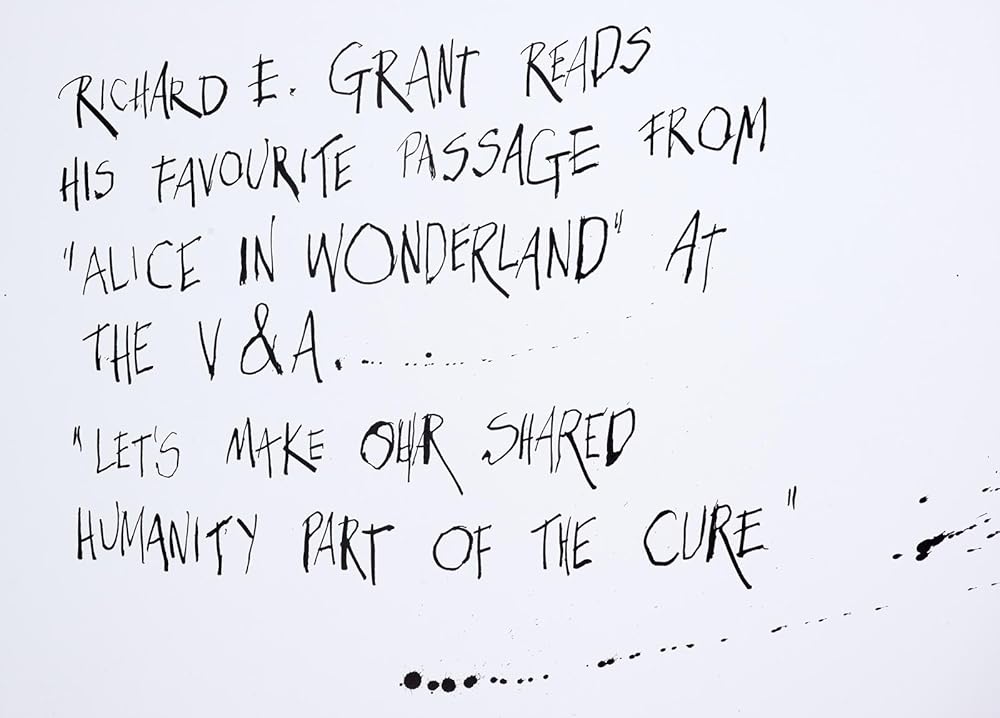 RICHARD E. GRANT READS
HIS FAVOURITE PASSAGE FROM
"ALICE IN WONDERLAND" AT
THE V & A.
"LET'S MAKE OUR SHARED
HUMANITY PART OF THE CURE"